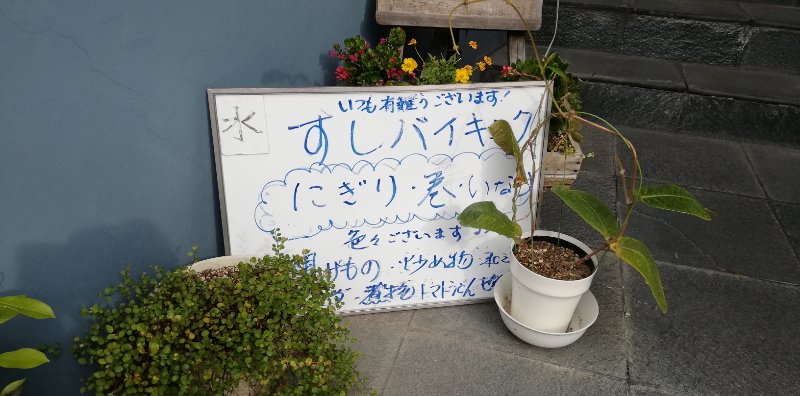 水
いつも有難うございます!
すしバイキング
にぎり・巻・いな
色々ございます
げもの・炒め物・
煮物 トマト